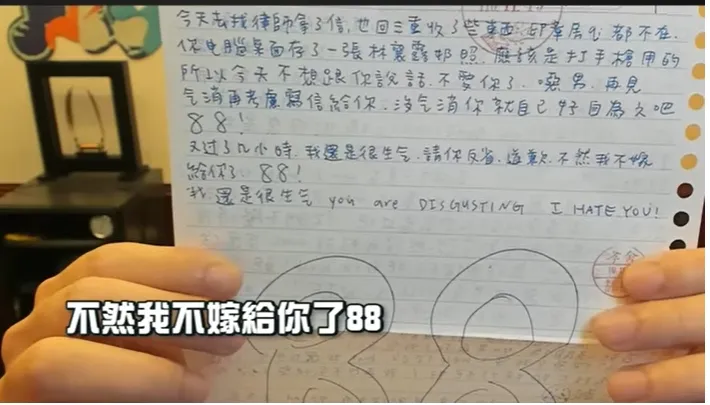 今天去找律師拿了信,也回三重收了些東西,邱韋辰也都不在,
你电腦桌面存了一張林襄露奶照,應該是打手槍用的
所以今天不想跟你說話,不愛你了,噁男,再見
气消再考慮寫信給你,沒气消你就自己好自為之吧
88!
又过了几小時,我還是很生气,請你反省,道歉,不然我不嫁
給你了 88!
我還是很生气 you are DISGUSTING I HATE YOU!
88
不然我不嫁給你了88